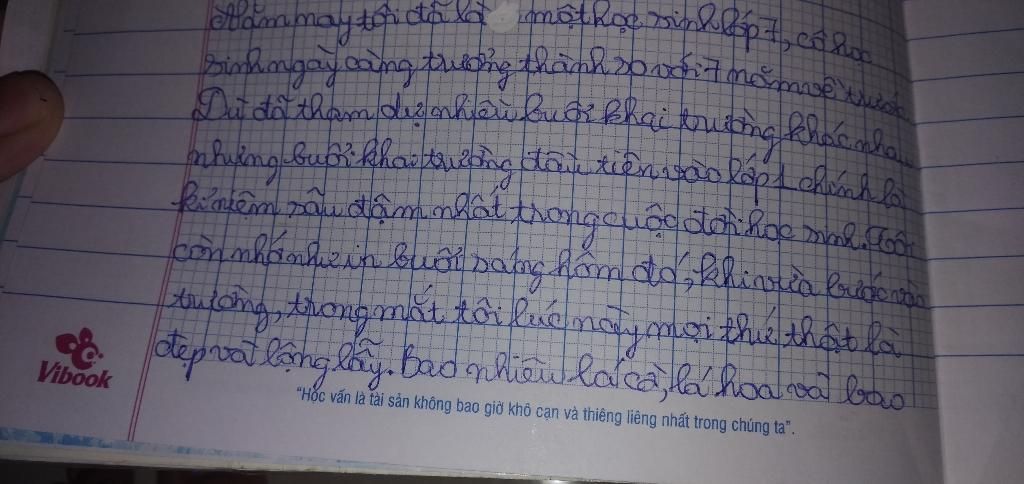 Năm nay tôi đã là một học sinh lớp 7, cô học
sinh ngày càng trưởng thành so với 7 năm về trước
Dù đã tham dự nhiều buổi khai trường khác nhau
nhưng buổi khai trường đầu tiên vào lớp 1 chính là
kỉ niệm sâu đậm nhất trong cuộc đời học sinh. Tôi
còn nhớ như in buổi sáng hôm đó, khi vừa bước vào
trường, trong mắt tôi lúc này mọi thứ thật là
đẹp và lộng lẫy. Bao nhiêu lá cờ, lá hoa và bao
Vibook
"Học vấn là tài sản không bao giờ khô cạn và thiêng liêng nhất trong chúng ta".